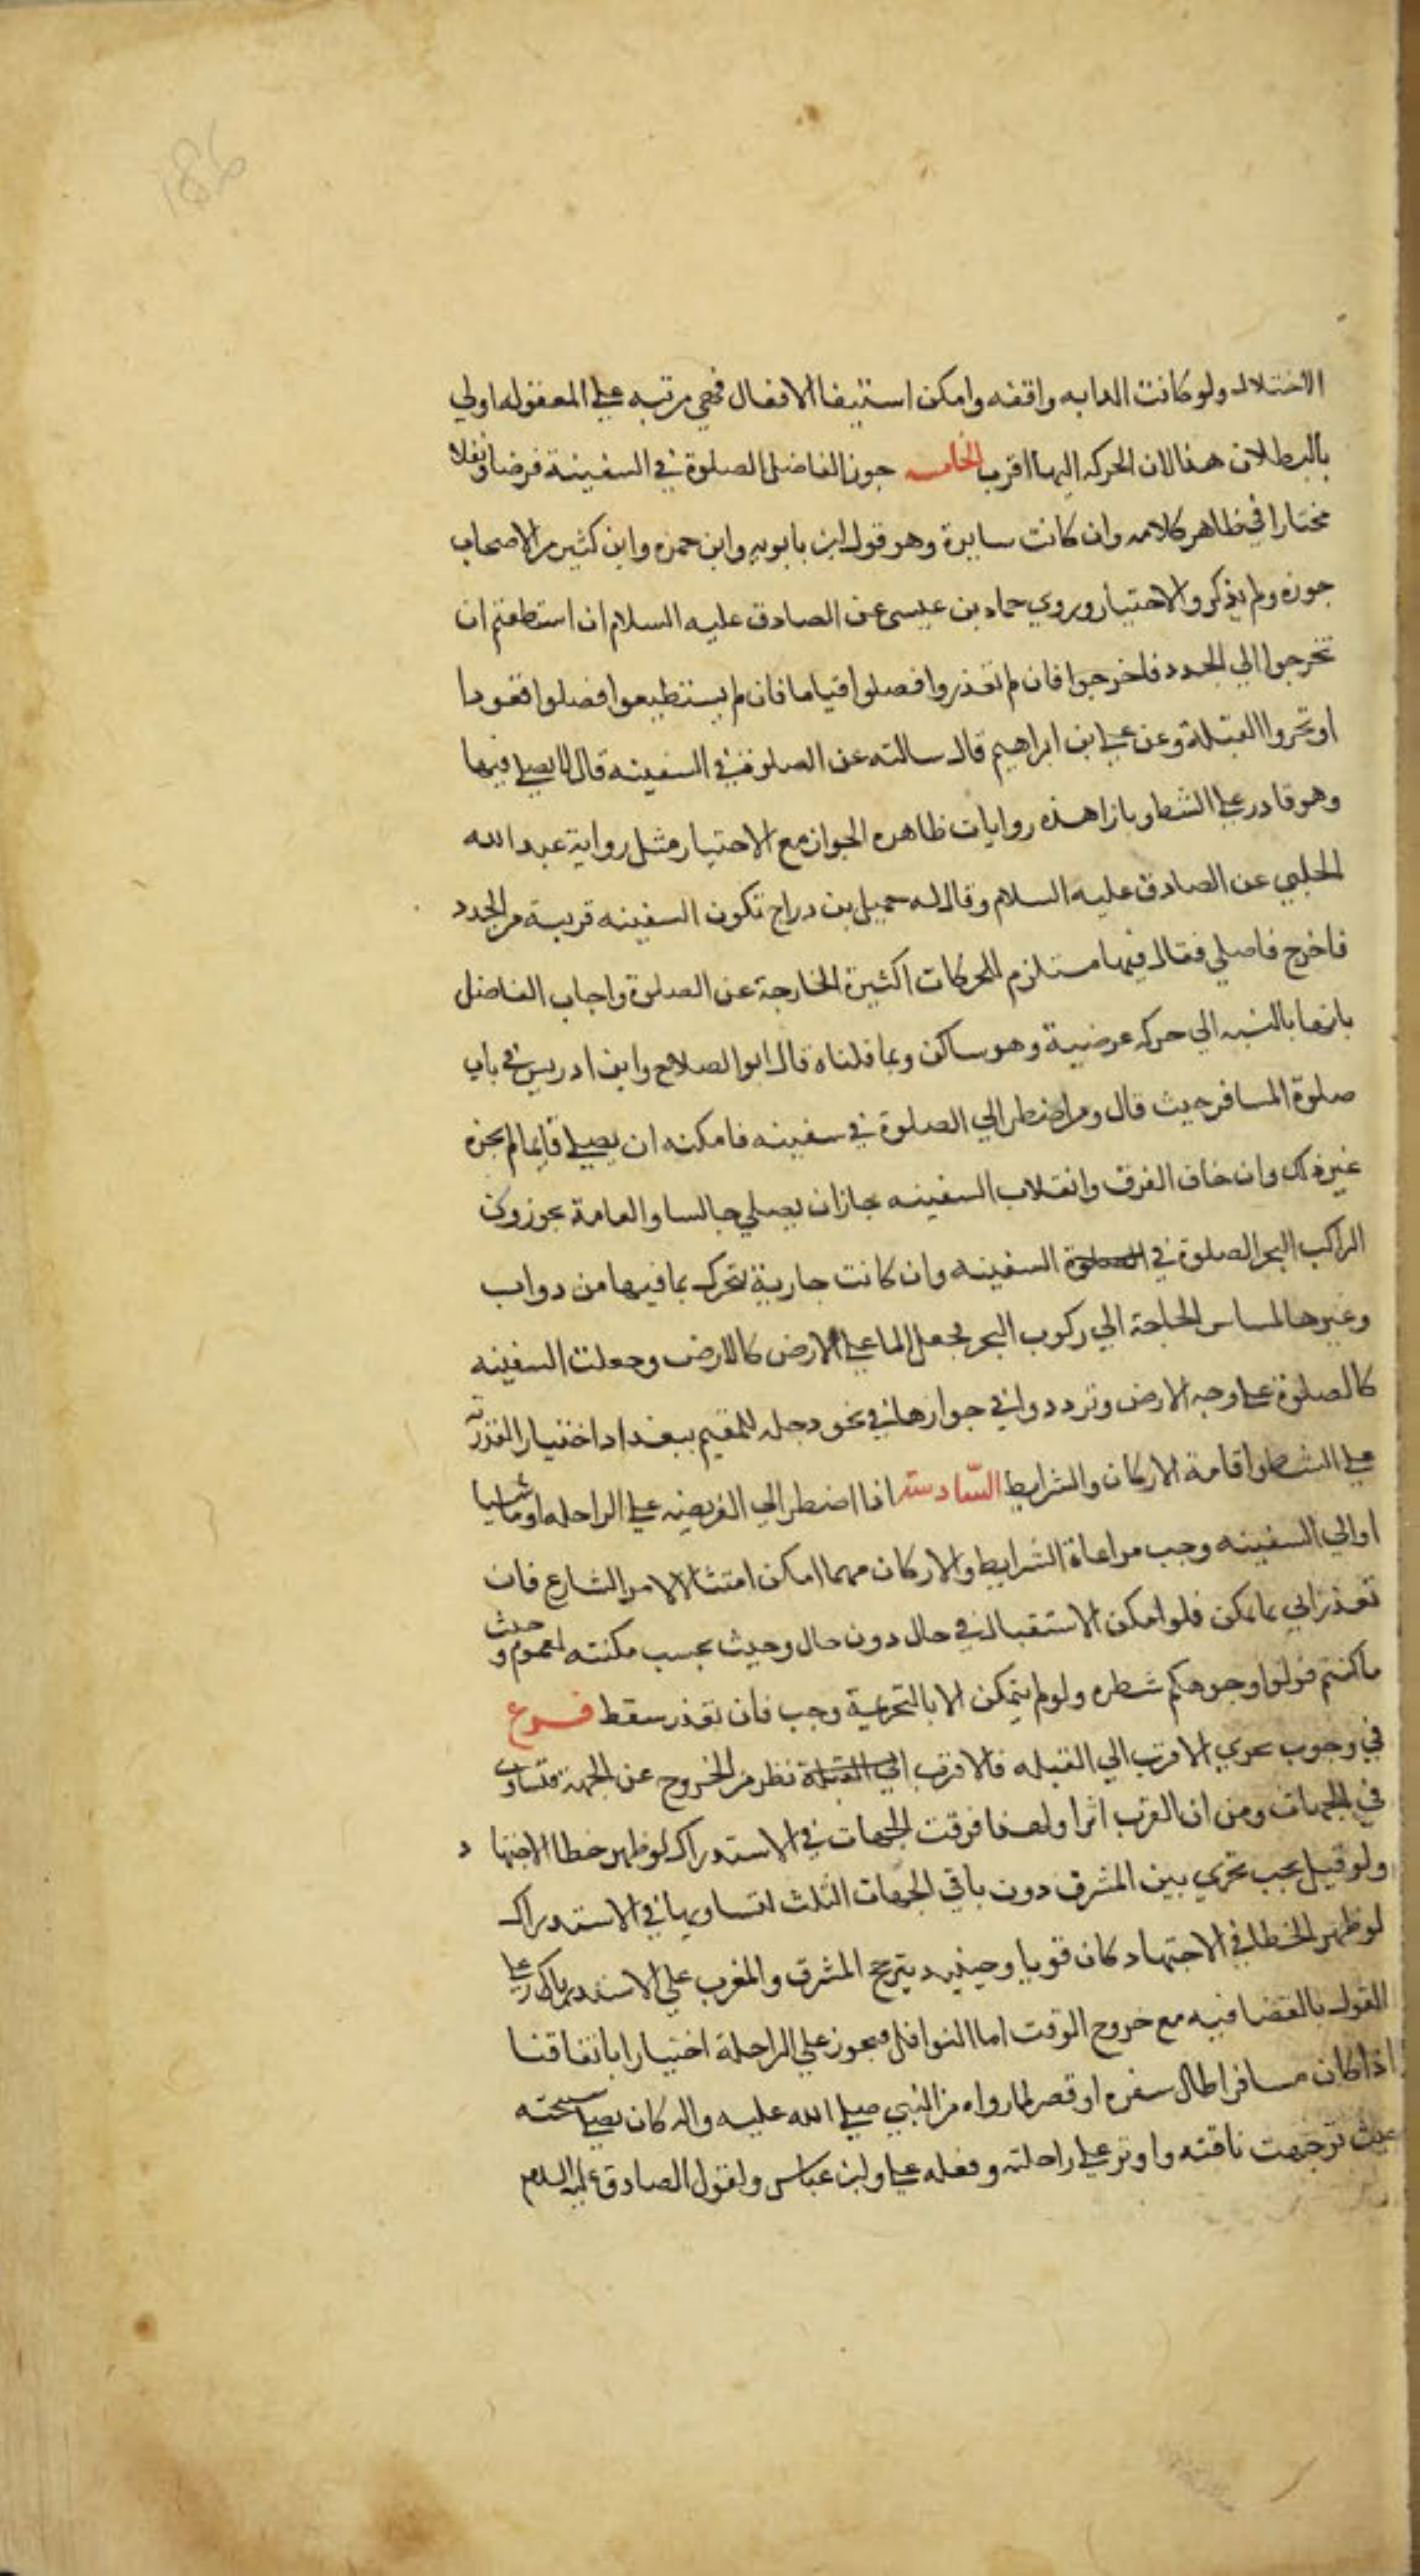 186
الاختلال ولو كانت الدابه واقفه وامكن استيفا الافعال فهي مرتبه علي المعقوله اولي
بالبطلان هنا لان الحركه اليها اقرب الخامسه جوز الفاضل الصلوة في السفينة فرضا ونفلا
مختارا في ظاهر كلامه وان كانت سايرة وهو قول ابن بابويه وابن حمزه وابن كثير من الاصحاب
جوزه ولم يذكروا الاختيار وروي حماد بن عيسى عن الصادق عليه السلام ان استطعتم ان
تخرجوا الي الجدد فاخرجوا فان لم تقدروا فصلوا قياما فان لم يستطيعوا فصلوا قعودا
او تحروا القبلة وعن علي بن ابراهيم قال سالته عن الصلوة في السفينه قال لا يصلي فيها
وهو قادر علي الشط وبازا هذه روايات ظاهره الجواز مع الاختيار مثل رواية عبد الله
الحلبي عن الصادق عليه السلام وقال له جميل بن دراج تكون السفينه قريبة من الجدد
فاخرج فاصلي فقال فيها مستلزم للحركات الكثيرة الخارجة عن الصلوة واجاب الفاضل
بانها بالنسبه الي حركه عرضية وهو ساكن وبما قلناه قال ابو الصلاح وابن ادريس في باب
صلوة المسافر حيث قال ومن اضطر الي الصلوة في سفينه فامكنه ان يصلي قايما لم يجزه
غير ذلك وان خاف الغرق وانقلاب السفينه جاز ان يصلي جالسا والعامة يجوزون
الراكب البحر الصلوة في الصلوة السفينه وان كانت جارية تتحرك بما فيها من دواب
وغيرها لمساس الحاجة الي ركوب البحر بجعل الما علي الارض كالارض وجعلت السفينه
كالصلوة علي وجه الارض وترددوا في جوازها في نحو دجله للمقيم ببغداد اختيارا لقدرته
علي الشط واقامة الاركان والشرايط السادسة اذا اضطر الي الفريضه علي الراحله او ماشيا
او الي السفينه وجب مراعاة الشرايط والاركان مهما امكن امتثالا لامر الشارع فان
تعذر اتي بما يمكن فلو امكن الاستقبال في حال دون حال وحيث بحسب مكنته لعموم وحيث
ما كنتم فولوا وجوهكم شطره ولو لم يتمكن الا بالتحريمة وجب فان تعذر سقط فرع
في وجوب تحري الاقرب الي القبله فالاقرب الي القبلة نظر من الخروج عن الجهة فتساوى
في الجهات ومن ان القرب اثرا ولهذا فرقت الجهات في الاستدراك لو ظهر خطا الاجتهاد
ولو قيل يجب تحري بين المشرق دون باقي الجهات الثلث لتساويها في الاستدراك
لو ظهر الخطا في الاجتهاد كان قويا وحينيد يترجح المشرق والمغرب علي الاستدبار علي
القول بالقضا فيه مع خروج الوقت اما النوافل فيجوز علي الراحلة اختيارا باتفاقنا
اذا كان مسافرا طال سفره او قصر لما رواه من النبي صلي الله عليه واله كان يصلي سبحته
حيث توجهت ناقته واوتر علي راحلته وفعله علي وابن عباس ولقول الصادق عليه السلام